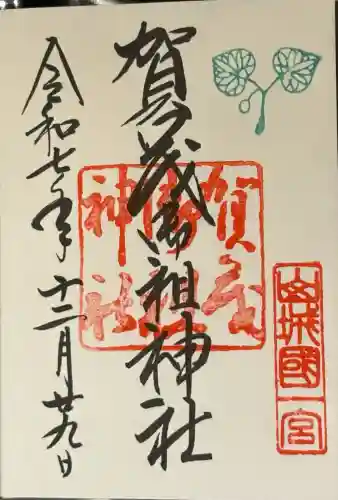 賀茂御祖神社
令和七年十二月廿九日
賀茂
御祖
神社
山城國一宮